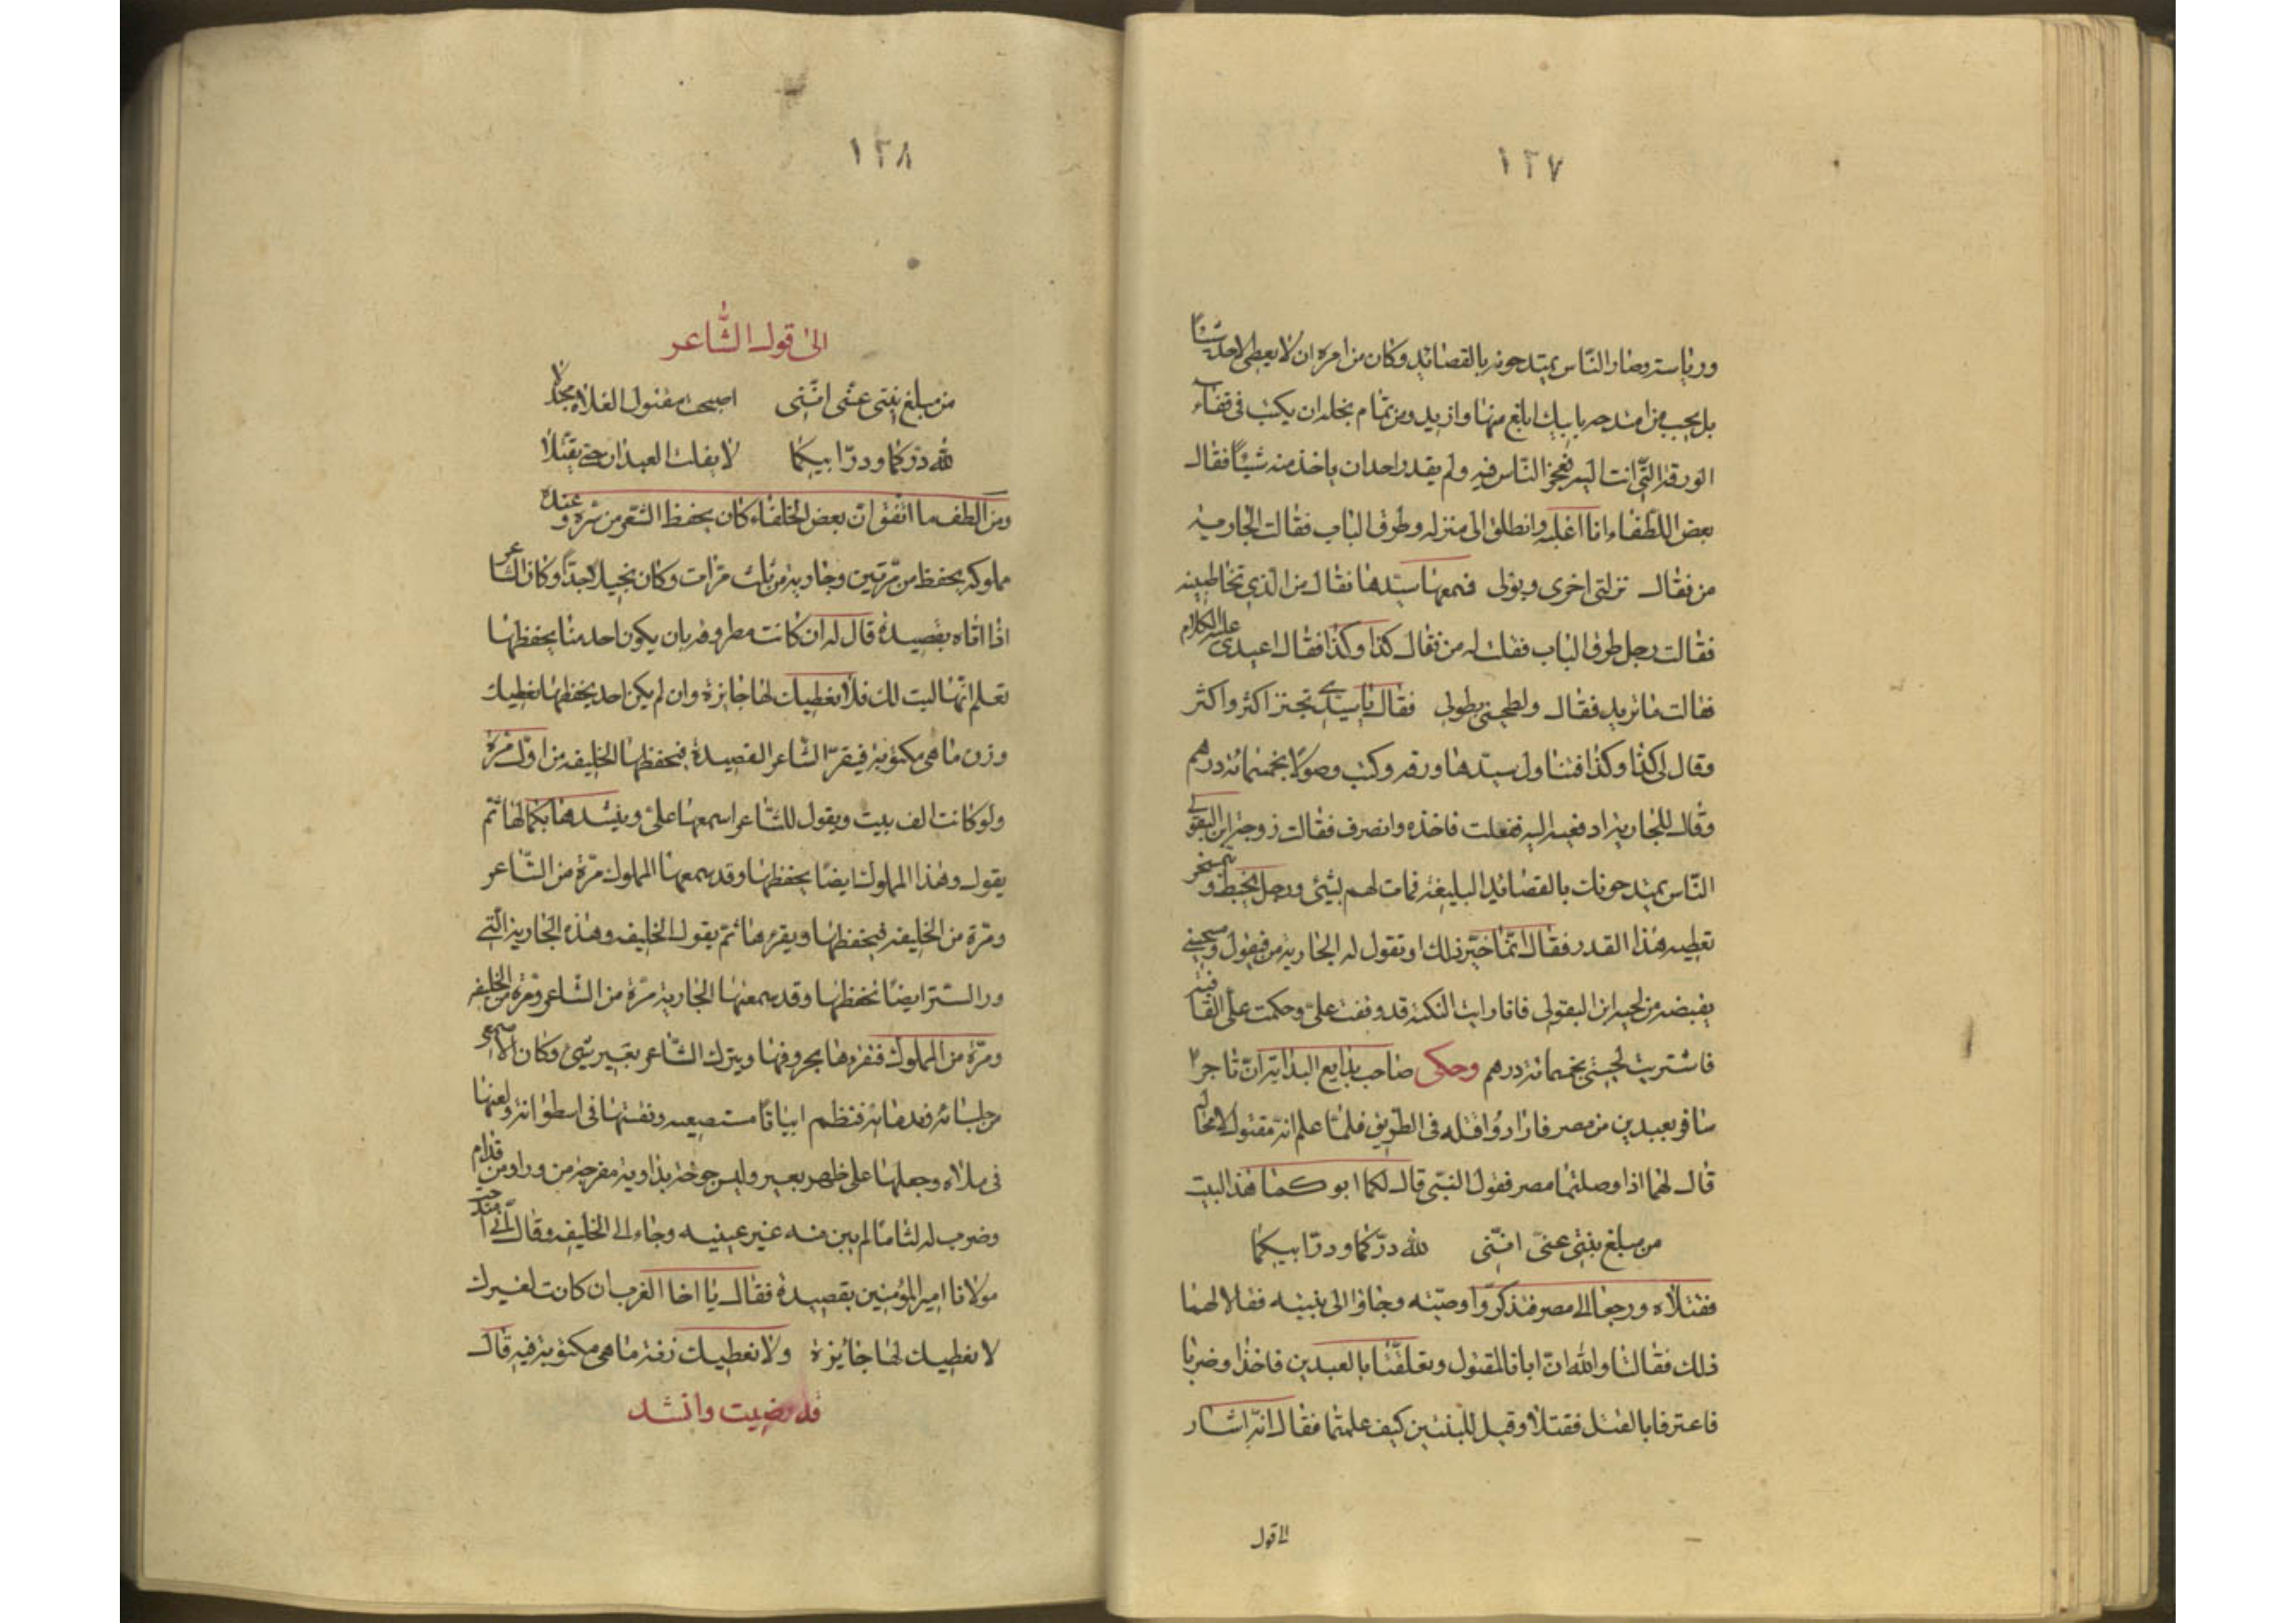 ١٢٧
ورياسته وصار الناس يمتدحونه بالقصائد وكان من امره ان لا يعطى لاحد شيئا
بل يجيب من امتدحه بابيات ابلغ منها وازيد ومن تمام بخله ان يكتب فى قفاء
الورقة التى اتت اليه فعجز الناس فيه ولم يقدر احد ان ياخذ منه شيئا فقال
بعض اللطفاء انا اغلبه وانطلق الى منزله وطرق الباب فقالت الجارية
من فقال تزلتى اخرى وبولى فسمعها سيدها فقال من الذي تخاطبينه
فقالت رجل طرق الباب فقلت له من فقال كذا وكذا فقال اعيدى عليه الكلام
فقالت ما تريد فقال ولطحينى بطولى فقال يا سيدى تجنز اكثر واكثر
وقال لى كذا وكذا فتناول سيدها ورقه وكتب وصولا بخمسمائة درهم
وقال للجارية ادفعيه اليه ففعلت فاخذه وانصرف فقالت زوجة ابن البقولى
الناس يمتدحونك بالقصائد البليغة فمات لهم بشئ ورجل يخبط و يتمسخر
تعطيه هذا القدر فقال انما خير ذلك او تقول له الجارية من فيقول وسحينى
بقبضه من لحية ابن البقولى فانا رايت النكتة قد وقفت على وحكمت على القافية
فاشتريت لحيتى بخمسمائة درهم وحكى صاحب بدايع البداية ان تاجرا
سافر بعبدين من مصر فارادوا قتله فى الطريق فلما علم انه مقتول لا محاله
قال لهما اذا وصلتما مصر فقولا لبنتى قال لكما ابوكما هذا البيت
من مبلغ بنتى عنى اننى لله دركما ودر ابيكما
فقتلاه ورجعا الى مصر فتذكروا وصيته وجاؤا الى بنتيه فقالا لهما
ذلك فقالتا والله ان ابانا لمقتول وتعلقتا بالعبدين فاخذا وضربا
فاعترفا بالقتل فقتلا وقيل للبنتين كيف علمتما فقالا انه اشار
الى قول
١٢٨
الى قول الشاعر
من مبلغ بنتى عنى اننى اصبحت مقتول الفلاه مجدلا
لله دركما ودر ابيكما لا يفلت العبدان حتى يقتلا
ومن الطف ما اتفق ان بعض الخلفاء كان يحفظ الشعر من مره وعنده
مملوكه يحفظ من مرتين وجارية من ثلث مرات وكان بخيلا جدا وكان الشاعر
اذا اتاه بقصيدة قال له ان كانت مطروقه بان يكون احد منا يحفظها
تعلم انها ليست لك فلا نعطيك لها جايزة وان لم يكن احد يحفظها نعطيك
وزن ما هى مكتوبة فيقرا الشاعر القصيدة فيحفظها الخليفه من اول مرة
ولو كانت الف بيت ويقول للشاعر اسمعها على وينشدها بكمالها ثم
يقول وهذا المملوك ايضا يحفظها وقد سمعها المملوك مرة من الشاعر
ومرة من الخليفه فيحفظها ويقرءها ثم يقول الخليفه وهذه الجارية التى
ورا الستر ايضا تحفظها وقد سمعتها الجارية مرة من الشاعر ومرة من الخليفه
ومرة من المملوك فتقرءها بحروفها ويترك الشاعر بغير شئ وكان الاصمعى
من جلسائه وندمائه فنظم ابياتا مستصعبه ونقشها فى اسطوانة ولفها
فى ملاه وجعلها على ظهر بعير ولبس جوخة بداوية مفرجة من ورا ومن قدام
وضرب له لثاما لم يبن منه غير عينيه وجاء الى الخليفه وقال انى امتدحت
مولانا امير المؤمنين بقصيدة فقال يا اخا العرب ان كانت لغيرك
لا نعطيك لها جائزة ولا نعطيك زنة ما هى مكتوبة فيه قال
قد رضيت وانشد